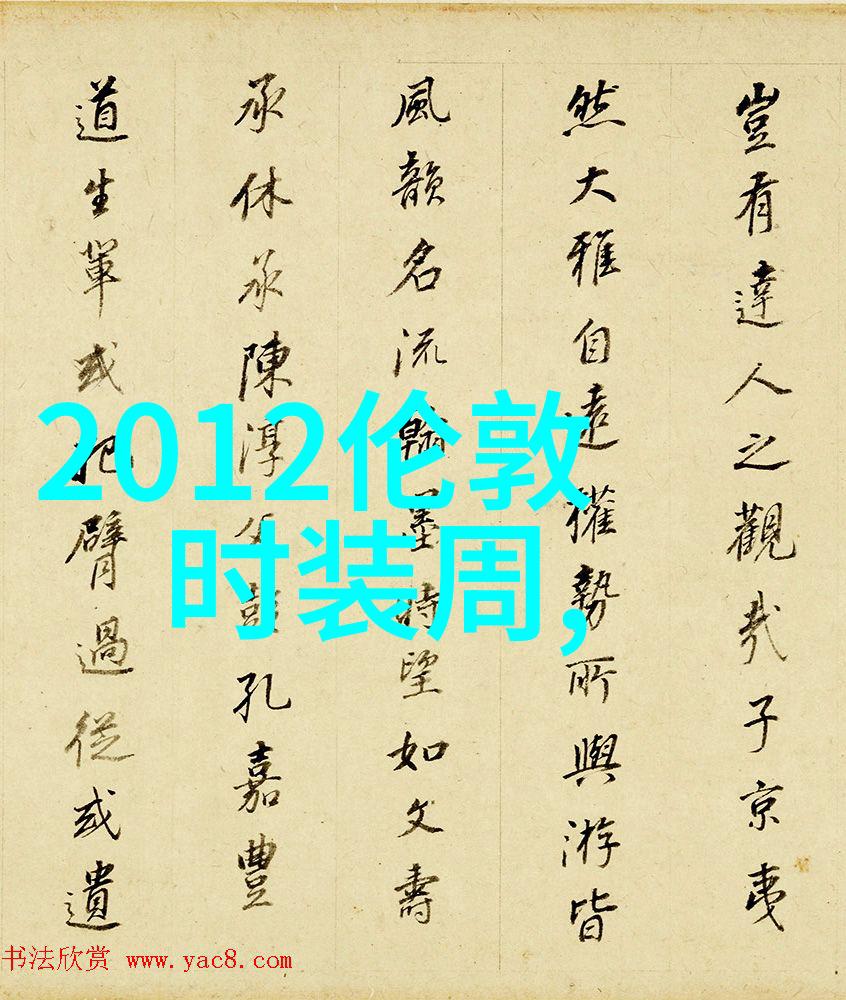 豈有達人之觀哉子京夷
然大雅自遠權勢所與游皆
風韻名流翰墨時望如文壽
承休承陳淳父彭孔嘉豐
道生輩或把臂過從或遺
2012伦敦
时装周,
书法欣赏 www.yac8.com